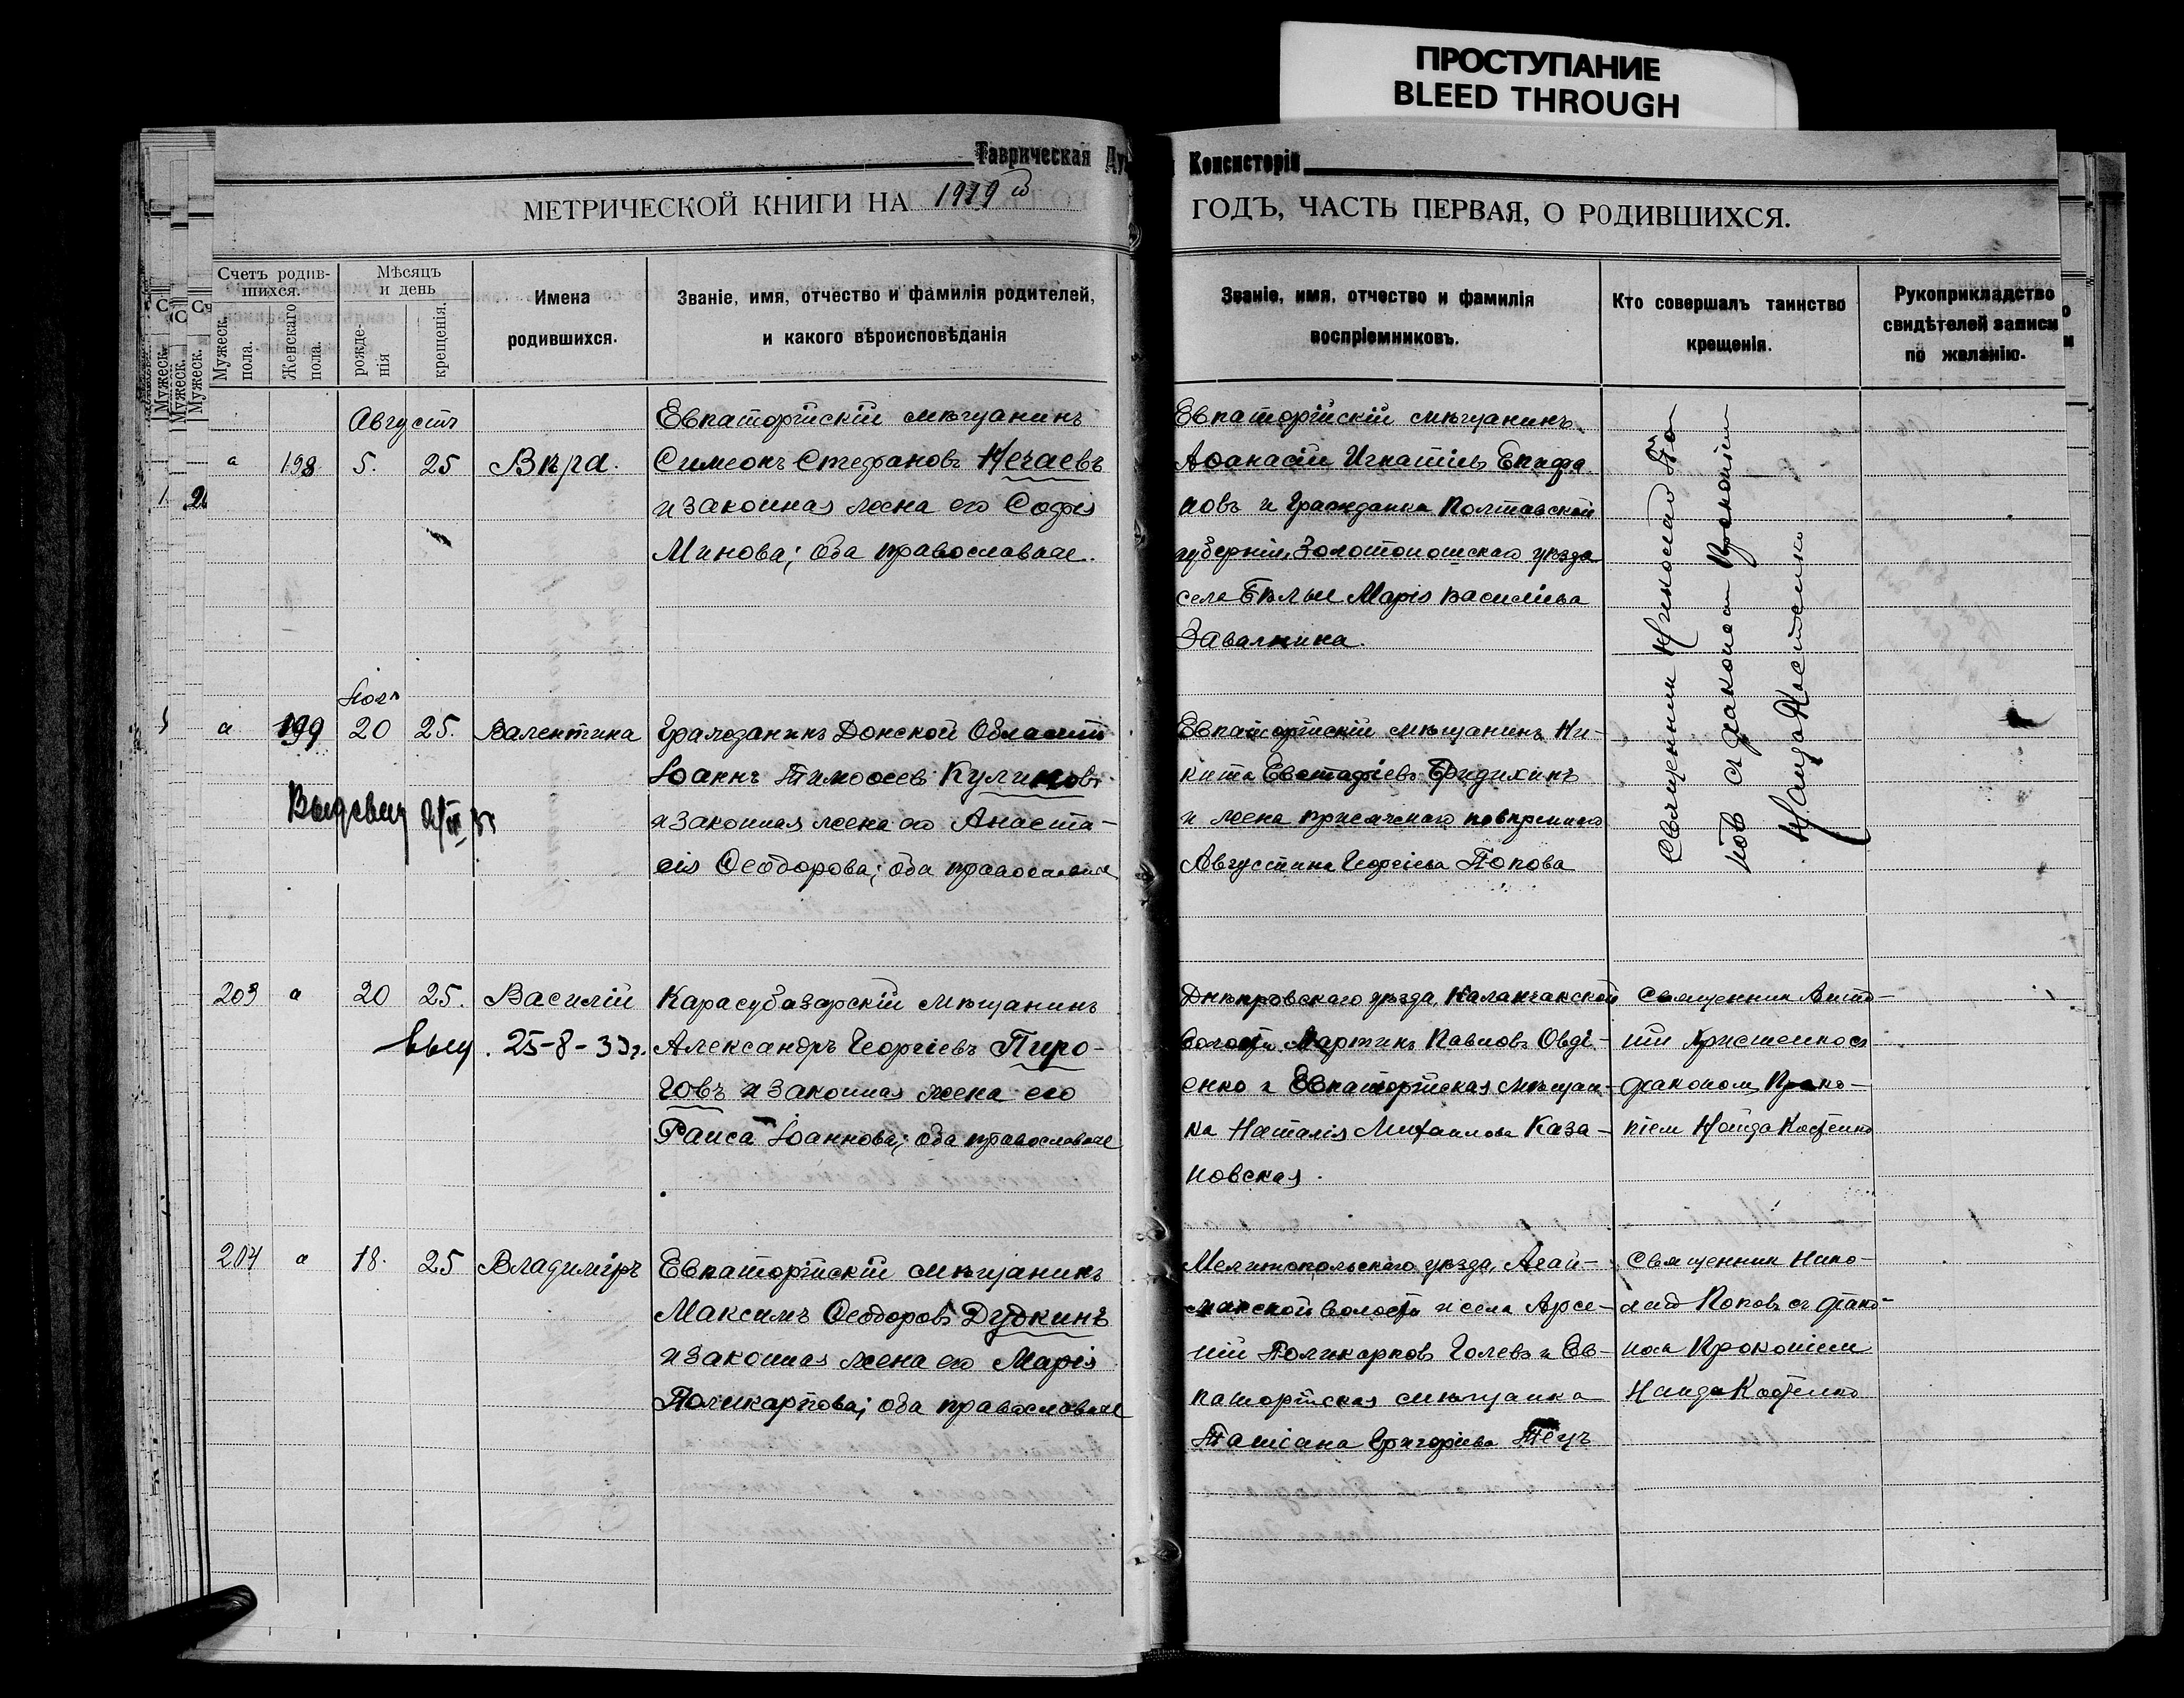 ПРОСТУПАНИЕ
BLEED THROUGH
Таврическая Ду
Консисторіи
МЕТРИЧЕСКОЙ КНИГИ НА 1919й
ГОДЪ, ЧАСТЬ ПЕРВАЯ, О РОДИВШИХСЯ.
Счетъ родив-
шихся.
Мужеск.
пола.
Женскаго
пола.
Мѣсяцъ
и день
рожде-
нія
крещенія.
Имена
родившихся.
Званіе, имя, отчество и фамилія родителей,
и какого вѣроисповѣданія
Званіе, имя, отчество и фамилія
воспріемниковъ.
Кто совершалъ таинство
крещенія.
Рукоприкладство
свидѣтелей записи
по желанію.
Августъ
198 5. 25 Вѣра.
Евпаторійскій мѣщанинъ
Симеонъ Стефановъ Нечаевъ
и законная жена его Софія
Минова; оба православные.
Евпаторійскій мѣщанинъ
Аѳанасій Игнатіевъ Епифа
новъ и гражданка Полтавской
губерніи, Золотоношскаго уѣзда
села Бѣлки Марія Василіева
Завалкина.
Священник Николай По
пов с диаконом Прокопіем
Найда Костенко
199 20 25. Валентина
Гражданинъ Донской Области
Іоаннъ Тимоѳеевъ Куликовъ
и законная жена его Анаста-
сія Ѳеодорова; оба православные
Евпаторійскій мѣщанинъ Ни-
кита Евстафіевъ
и жена присяжнаго повѣреннаго
Августина Георгіева Попова
203 20 25. Василій
выд. 25-8-33г.
Карасубазарскій мѣщанинъ
Александръ Георгіевъ Пиро-
говъ и законная жена его
Раиса Іоаннова; оба православные
Днѣпровскаго уѣзда, Каланчакской
волости Мартинъ Павловъ Овді-
енко и Евпаторійская мѣщан-
ка Наталія Михаилова Каза-
новская.
Священник Анто-
ній с
диаконом Проко-
піем Найда Костенко
204 18. 25 Владиміръ
Евпаторійскій мѣщанинъ
Максимъ Ѳеодоровъ Дудкинъ
и законная жена его Марія
Поликарпова; оба православные
Мелитопольскаго уѣзда, Агай-
манской волости и села Арсе-
ній Поликарповъ Голевъ и Ев-
паторійская мѣщанка
Татіана Григоріева
Священник Нико-
лай Поповъ съ диако-
ном Прокопіем
Найда Костенко